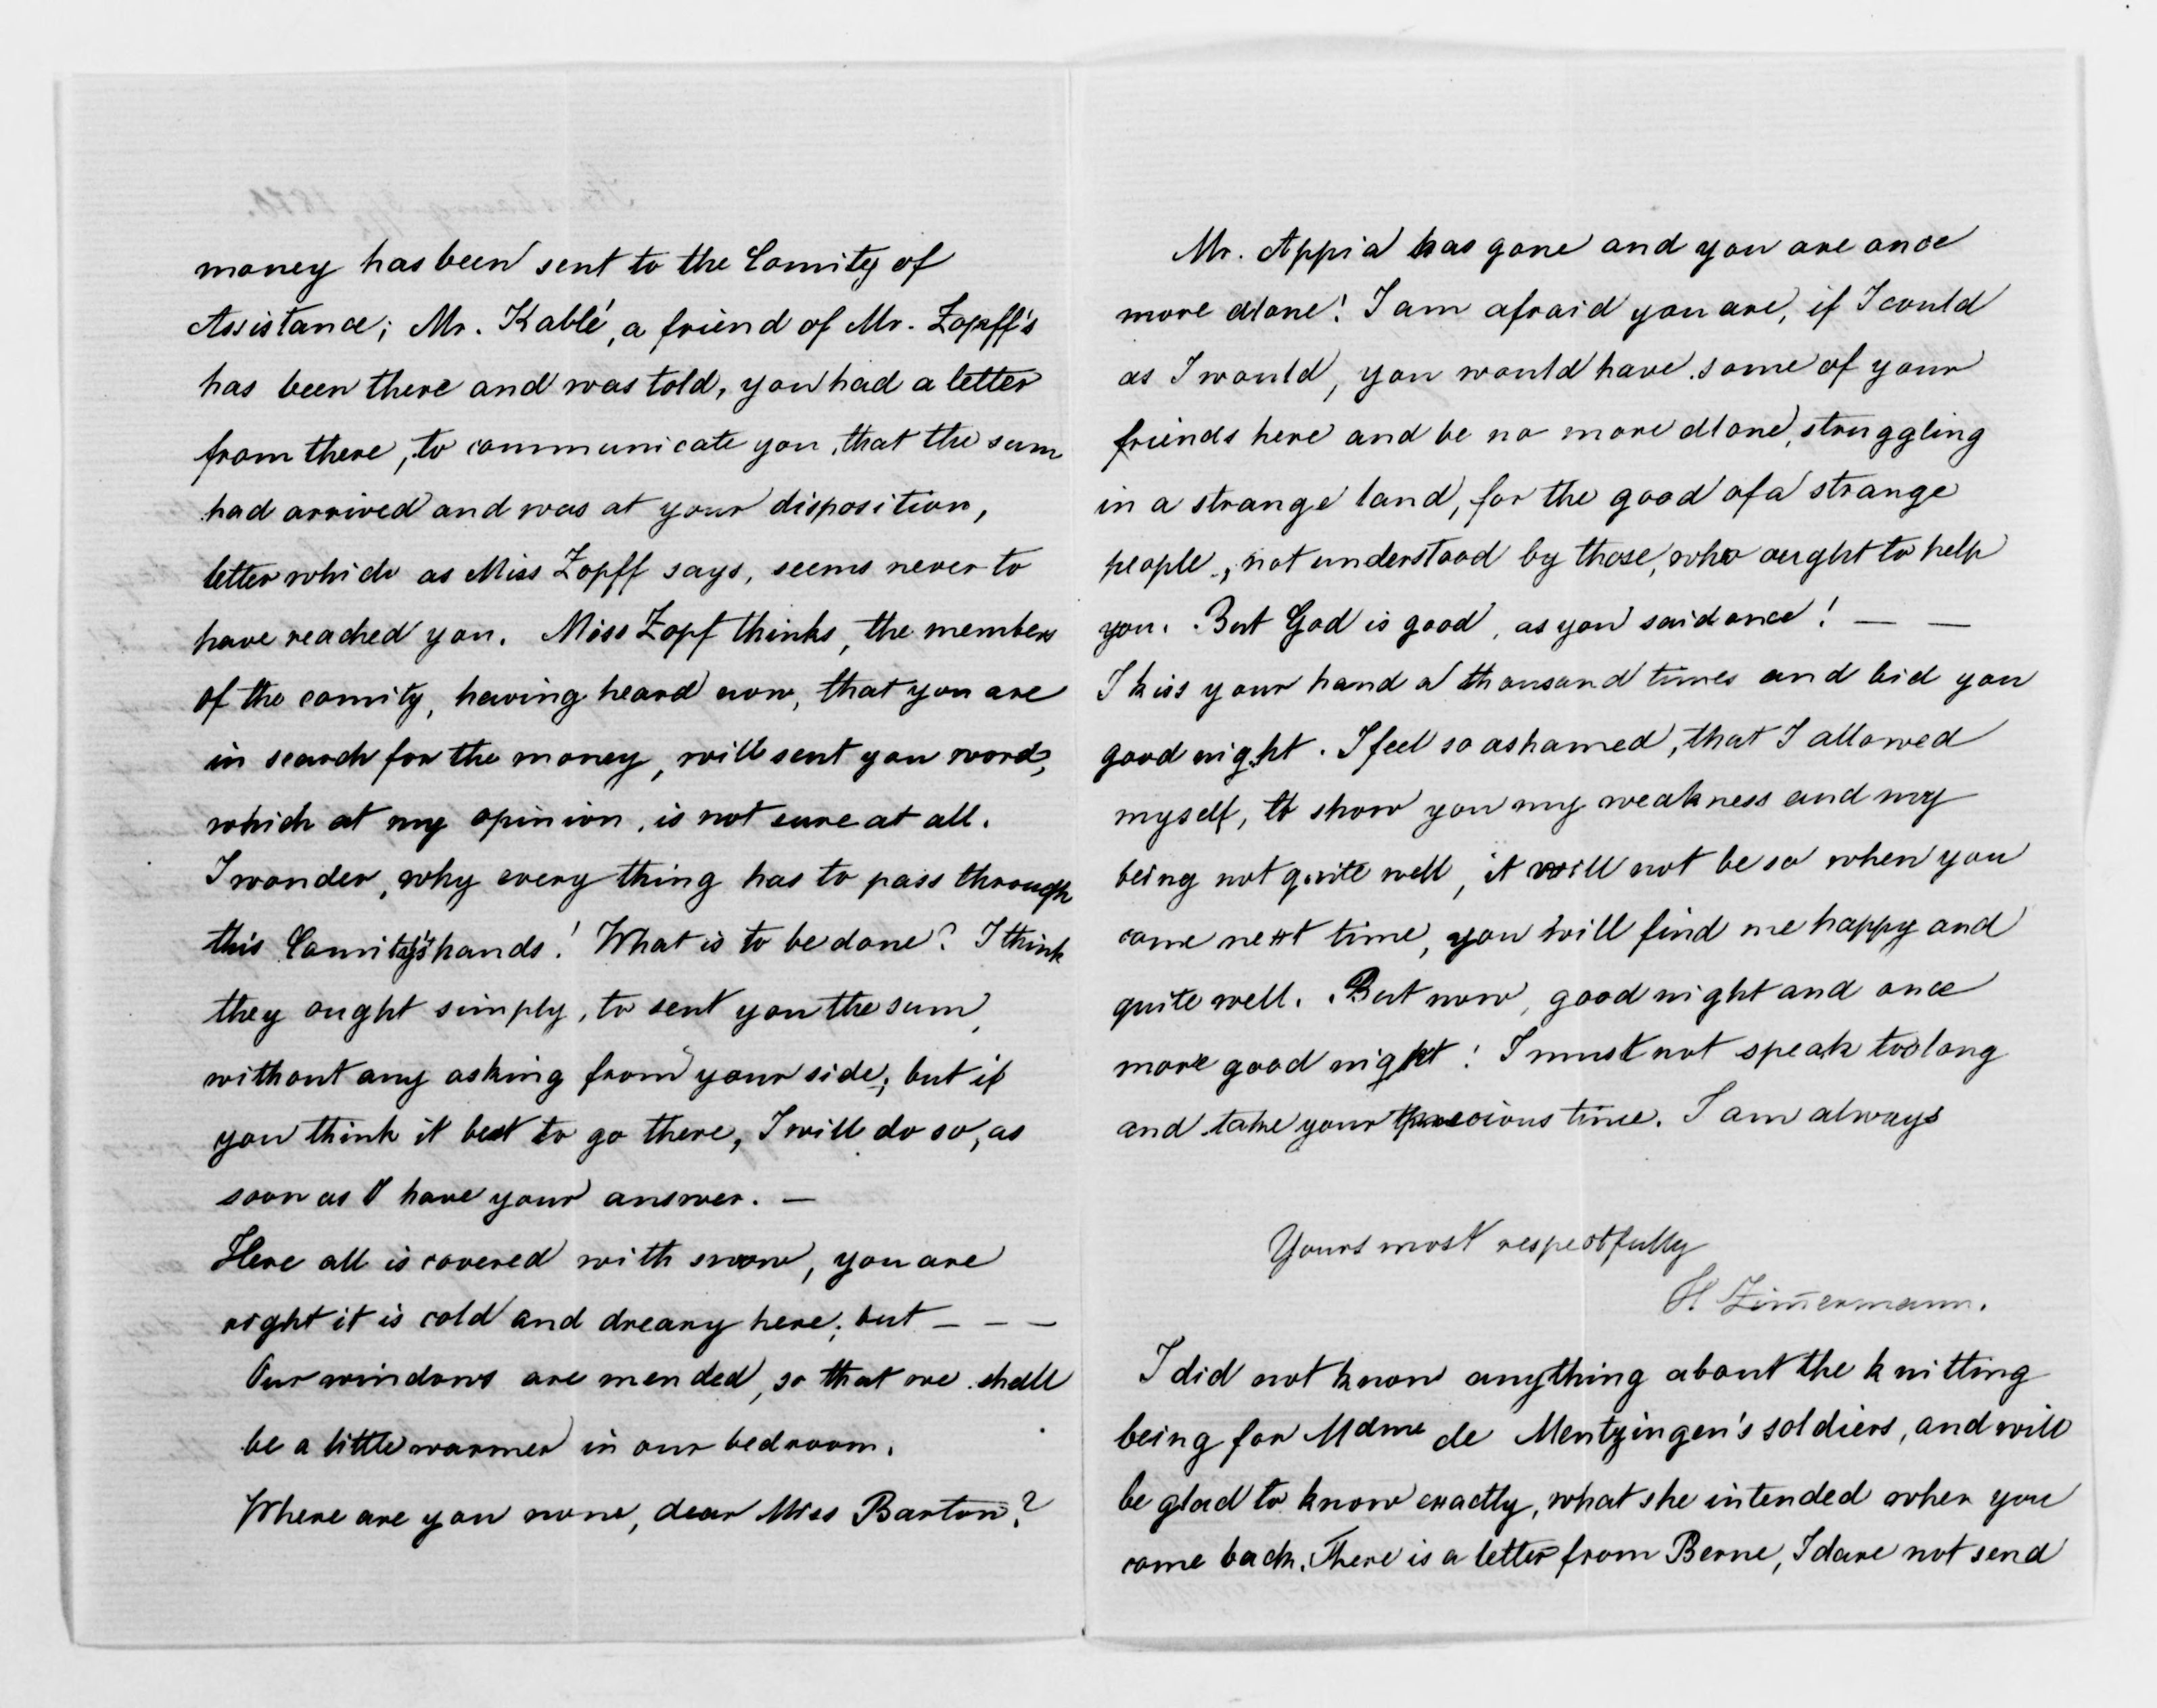 money has been sent to the Comity of
Assistance; Mr. Kablé, a friend of Mr. Zopff's
has been there and was told, you had a letter
from there, to communicate you, that the sum
had arrived and was at your disposition,
letter which as Miss Zopff says, seems never to
have reached you. Miss Zopf thinks, the members
of the comity, having heard now, that you are
in search for the money, will sent you word,
which at my opinion, is not sure at all.
I wonder, why every thing has to pass through
this Comity's hands! What is to be done? I think
they ought simply, to sent you the sum,
without any asking from your side; but if
you think it best to go there, I will do so, as
soon as I have your answer. —
Here all is covered with snow, you are
right it is cold and dreary here; but — — —
Our windows are mended, so that we shall
be a little warmer in our bedroom.
Where are you now, dear Miss Barton?
Mr. Appia has gone and you are once
more alone! I am afraid you are, if I could
as I would, you would have some of your
friends here and be no more alone, struggling
in a strange land, for the good of a strange
people, not understood by those, who ought to help
you. But God is good, as you said once! — —
I kiss your hand a thousand times and bid you
good night. I feel so ashamed, that I allowed
myself, to show you my weakness and my
being not quite well, it will not be so when you
come next time, you will find me happy and
quite well. But now, good night and once
more good night! I must not speak too long
and take your precious time. I am always
Yours most respectfully
H. Zim̄ermann.
I did not know anything about the knitting
being for Mdme de Mentzingen's soldiers, and will
be glad to know exactly, what she intended when you
come back. There is a letter from Berne, I dare not send